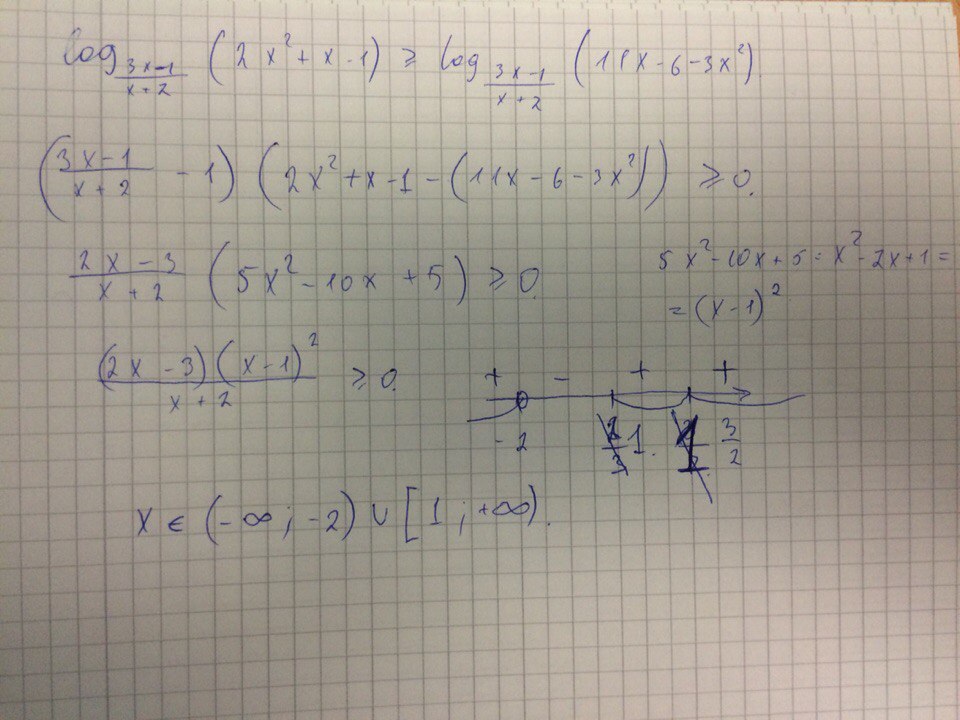 log_{\frac{3x-1}{x+2}} (2x² + x - 1) ≥ log_{\frac{3x-1}{x+2}} (11x - 6 - 3x²).
(\frac{3x-1}{x+2} - 1) (2x² + x - 1 - (11x - 6 - 3x²)) ≥ 0.
\frac{2x-3}{x+2} (5x² - 10x + 5) ≥ 0
5x² - 10x + 5 = x² - 2x + 1 =
= (x-1)²
\frac{(2x-3)(x-1)²}{x+2} ≥ 0.
+ - + +
-2 1. \frac{3}{2}
x ∈ (-∞; -2) ∪ [1; +∞).